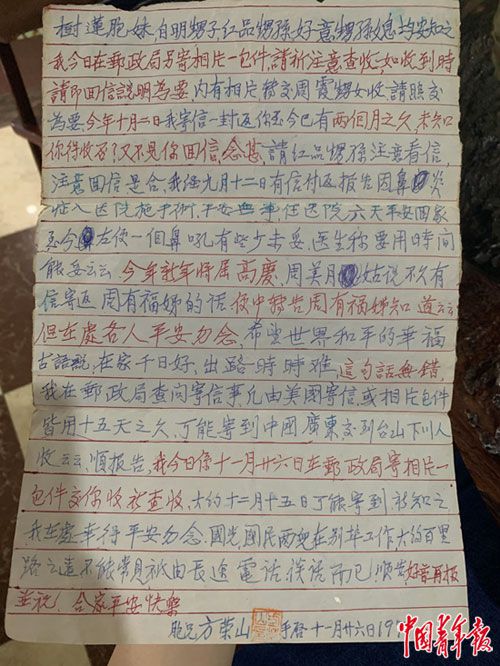 樹蓮胞妹自明甥子紅品甥孫好意甥孫媳均安知之
我今日在郵政局另寄相片一包件請祈注意查收如收到時
請即回信説明為要內有相片轉交周甥女收請照交
為要今年十月二日我寄信一封返你至今已有兩個月之久未知
你待收否了又不見你回信念甚請紅品甥孫注意看信
注意回信是合我經九月十二日有信付返報告因鼻炎
症入医院施手術平安無事住医院六天平安回家
至今左使一個鼻吼有些少未妥医生称要用時間
能妥云云今年新年將屆高慶周美月姑説不久有
信寄返周有福娣的話便中轉告周有福娣知道云云
但在處各人平安勿念希望世界和平的幸福
古話說在家千日好出路時時難這句話無錯
我在郵政局查问寄信事凡由美國寄信或相片包件
皆用十五天之久可能寄到中國廣東交到台山下川人
收云云順报告我今日停十一月廿六日在郵政局寄相片一
包件交你收祈查收大約十二月十五日可能寄到祈知之
我在處幸得平安勿念國光國民兩現在別埠工作大約百里
路之遠不能常見祇由長途電話談話而已順告好音再报
並祝合家平安快樂
胞兄方榮山手啓十一月廿六日19
中國青年报